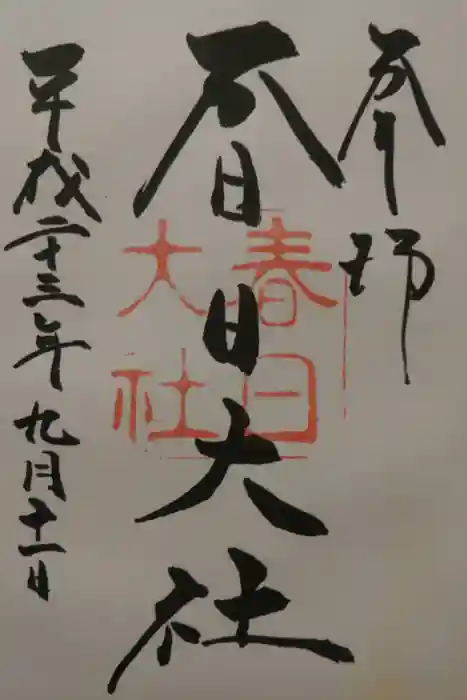 奉拝
春日大社
春日
大社
平成二十三年九月十一日